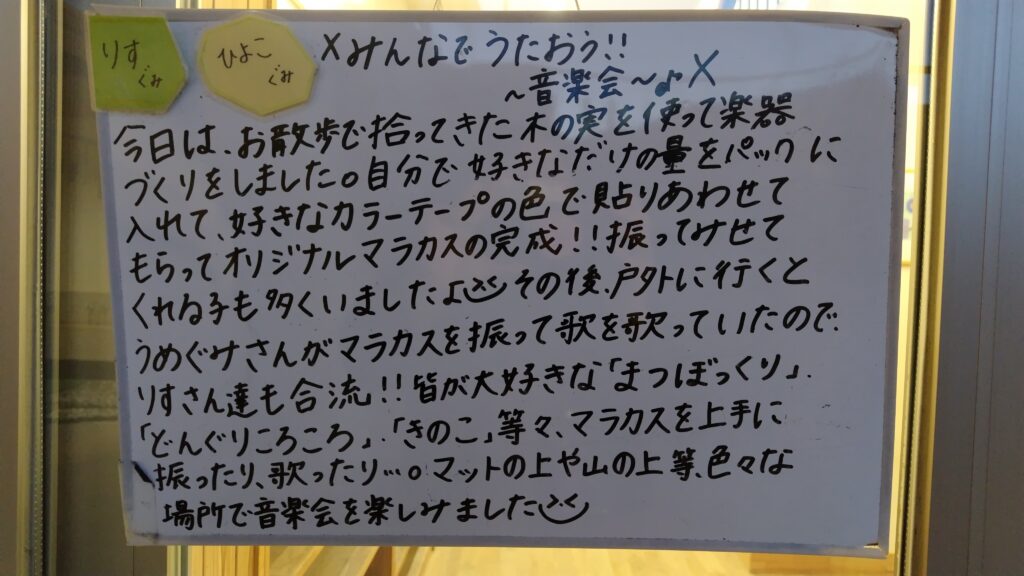 りす
ぐみ
ひよこ
ぐみ
×みんなでうたおう!!
~音楽会~♪×
今日は、お散歩で拾ってきた木の実を使って楽器
づくりをしました。自分で好きなだけの量をパックに
入れて、好きなカラーテープの色で貼りあわせて
もらってオリジナルマラカスの完成!!振ってみせて
くれる子も多くいましたよ その後、戸外に行くと
うめぐみさんがマラカスを振って歌を歌っていたので、
りすさん達も合流!!皆が大好きな「まつぼっくり」、
「どんぐりころころ」、「きのこ」等々、マラカスを上手に
振ったり、歌ったり…。マットの上や山の上等、色々な
場所で音楽会を楽しみました